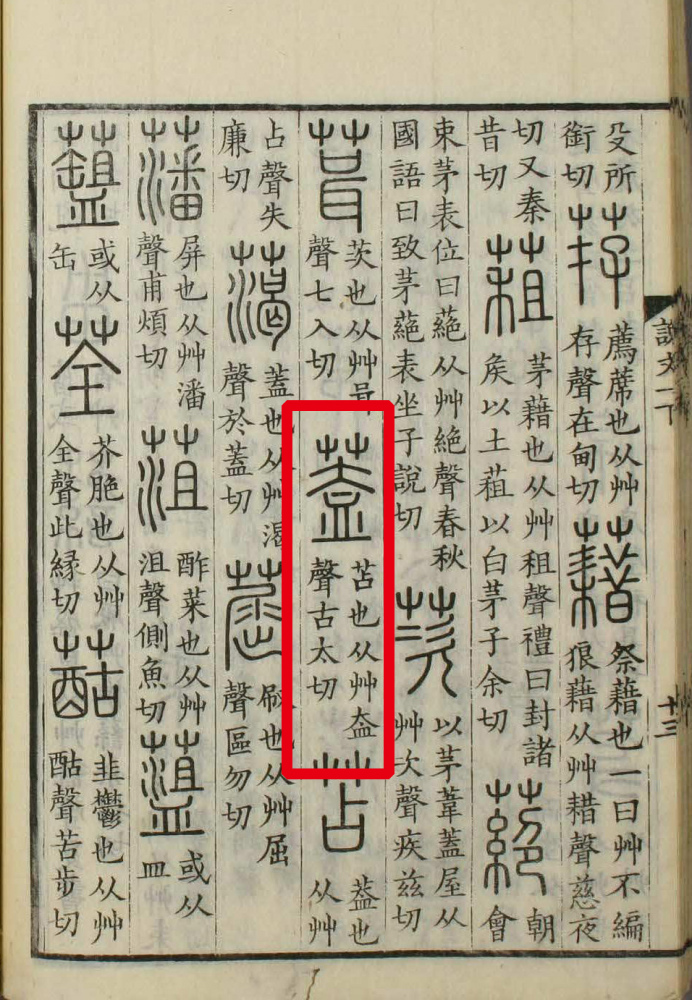 說文一下
十三
殳所
銜切
荐
薦蓆也从艸
存聲在甸切
藉
祭藉也一曰艸不編
狼藉从艸耤聲慈夜
切又秦
昔切
蒩
茅藉也从艸租聲禮曰封諸
矦以土蒩以白茅子余切
蕝
朝
會
束茅表位曰蕝从艸絕聲春秋
國語曰致茅蕝表坐子說切
茨
以茅葦蓋屋从
艸次聲疾茲切
葺
茨也从艸咠
聲七入切
葢
苫也从艸盇
聲古太切
苫
葢也
从艸
占聲失
廉切
蓋也从艸渴
聲於蓋切
䓛
刷也从艸屈
聲區勿切
藩
屏也从艸潘
聲甫煩切
菹
酢菜也从艸
沮聲側魚切
或从
皿
或从
缶
荃
芥脃也从艸
全聲此緣切
韭鬱也从艸
酤聲苦步切